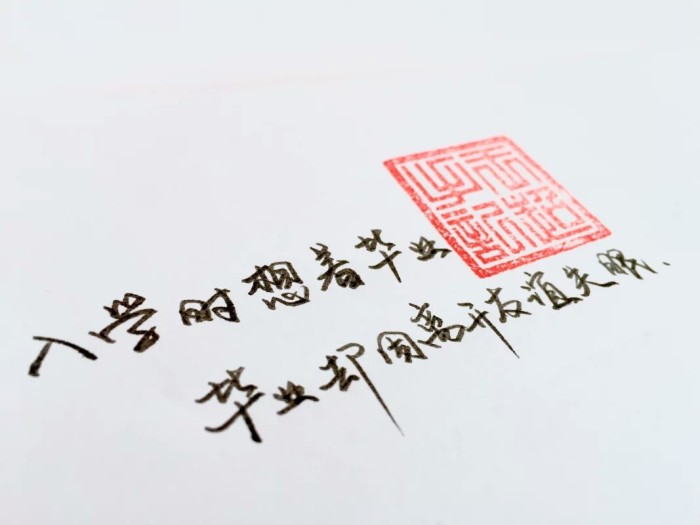 入学时想着毕业
毕业却因离开友谊失眠.